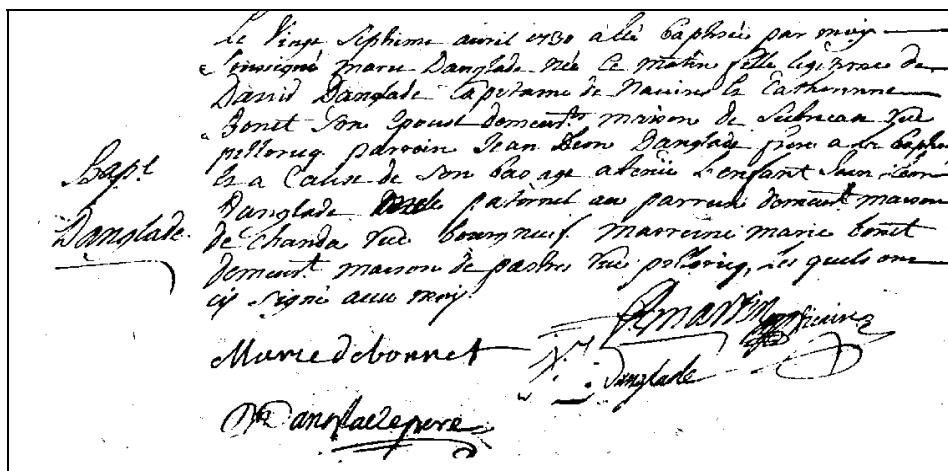 Le Vingt Septieme avril 1730 a été Baptisée par moy
Soussigné marie Danglade née Ce matin fille legitime de
David Danglade Capitaine de Navire et Catherinne
Bonet Son Epouse demeurt maison de rue
parrain Jean Léon Danglade frere a la
et a Cause de Son bas age a tenu L'enfant Jean Léon
Danglade oncle paternel au parrain demeurt maison
de Chanda rue bourgneuf marreine marie bonet
demeurt maison de pastre rue Les quels ont
icy Signé avec moy
Bapt.
Danglade.
Martin Vicaire
Marie de bonnet
Danglade
Danglade pere